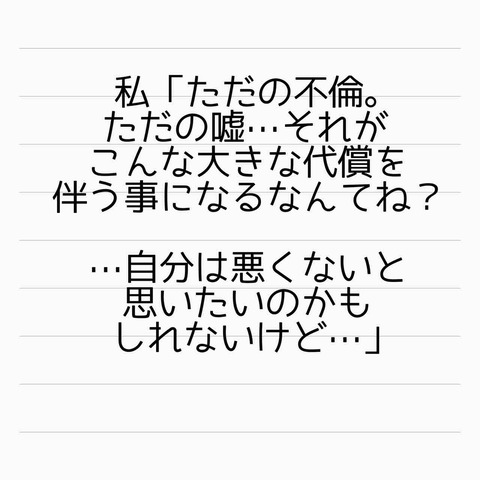 私「ただの不倫。
ただの嘘…それが
こんな大きな代償を
伴う事になるなんてね？
…自分は悪くないと
思いたいのかも
しれないけど…」